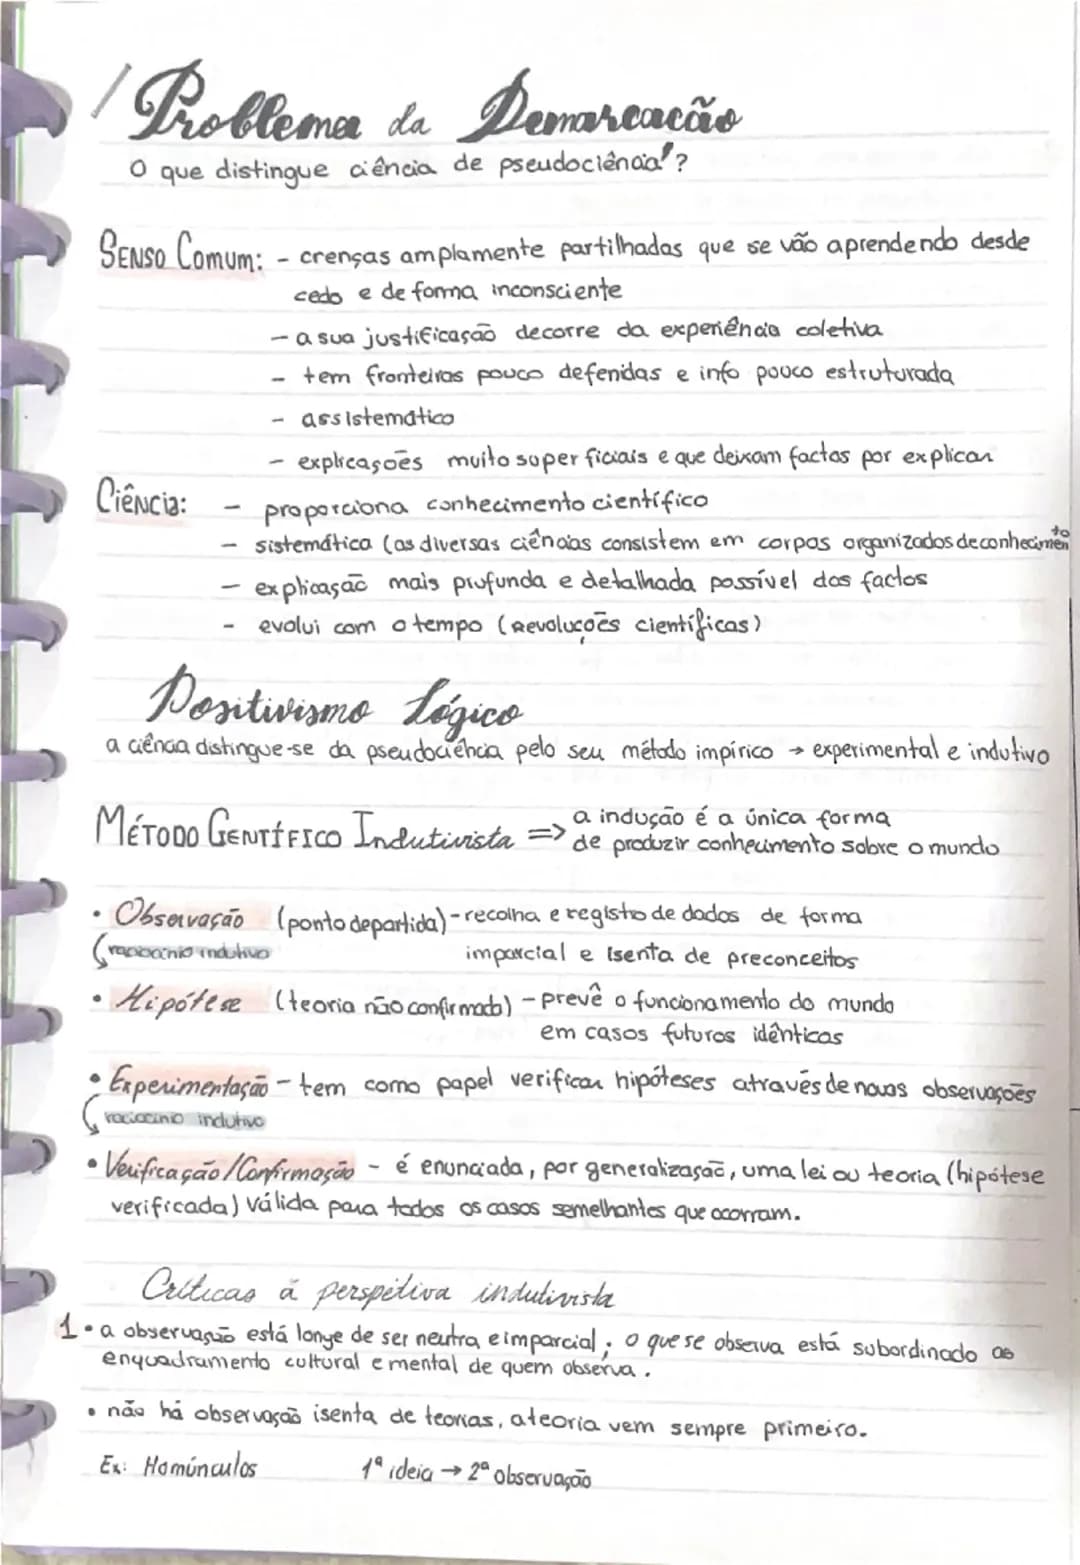 Problema da Demarcacão
O que distingue ciência de pseudociência'?
SENSO COMUM: - crenças amplamente partilhadas que se vão aprendendo desde
cedo e de forma inconsciente
- a sua justificação decorre da experiência coletiva
- tem fronteiras pouco defenidas e info pouco estruturada
- assistemático
- explicações muito superficiais e que deixam factos por explicar
Ciência: - proporciona conhecimento científico
- sistemática (as diversas ciências consistem em corpos organizados de conhecimento
- explicação mais profunda e detalhada possível dos factos
- evolui com o tempo (Revoluções científicas)
Positivismo Lógico
a ciência distingue-se da pseudociência pelo seu método impírico → experimental e indutivo
MÉTODO CIENTÍFICO Indutivista => a indução é a única forma
de produzir conhecimento sobre o mundo
• Observação (ponto departida) - recolha e registo de dados de forma
raciocínio indutivo imparcial e isenta de preconceitos
• Hipótese (teoria não confirmada) - prevê o funcionamento do mundo
em casos futuros idênticos
• Experimentação - tem como papel verificar hipóteses através de novas observações
raciocínio indutivo
• Verificação/Confirmação - é enunciada, por generalização, uma lei ou teoria (hipótese
verificada) válida para todos os casos semelhantes que ocorram.
Críticas à perspetiva indutivista
1 • a observação está longe de ser neutra e imparcial; o que se observa está subordinado ao
enquadramento cultural e mental de quem observa.
• não há observação isenta de teorias, a teoria vem sempre primeiro.
Ex: Homúnculos 1º ideia → 2º observação